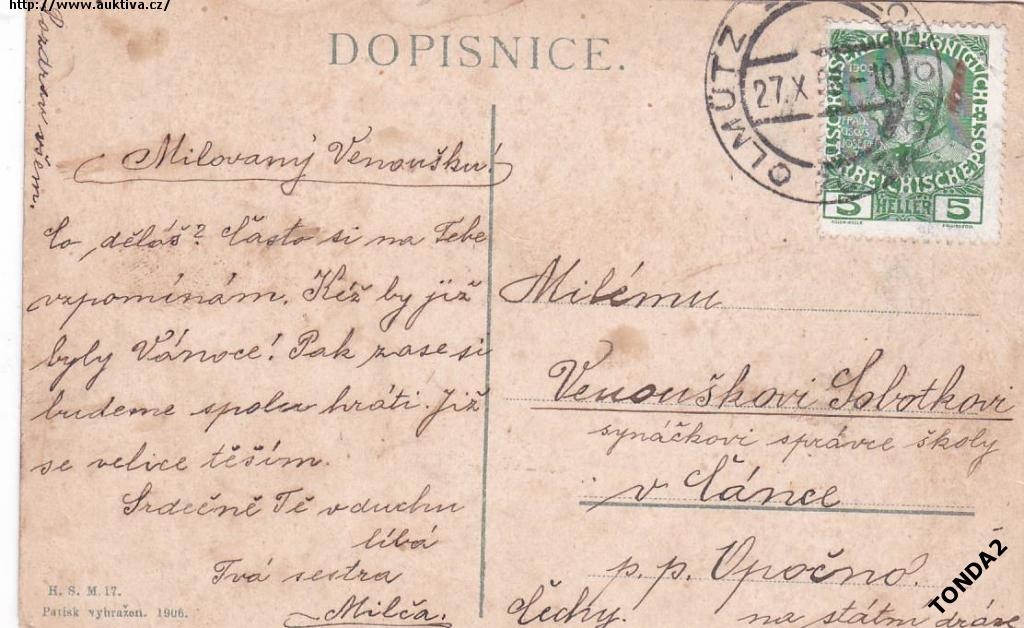 http://www.auktiva.cz/
DOPISNICE.
Pozdrav všem.
Milovaný Venoušku!
Co děláš? Často si na Tebe
vzpomínám. Kéž by již
byly Vánoce! Pak zase si
budeme spolu hráti. Již
se velice těším.
Srdečně Tě v duchu
líbá
Tvá sestra
Milča.
H. S. M. 17.
Patisk vyhražen. 1906.
OLMÜTZ
27.X
10
5 HELLER 5
Milému
Venouškovi Sobotkovi
synáčkovi správce školy
v Čánce
p. p. Opočno.
Čechy. na státní dráze
TONDA2